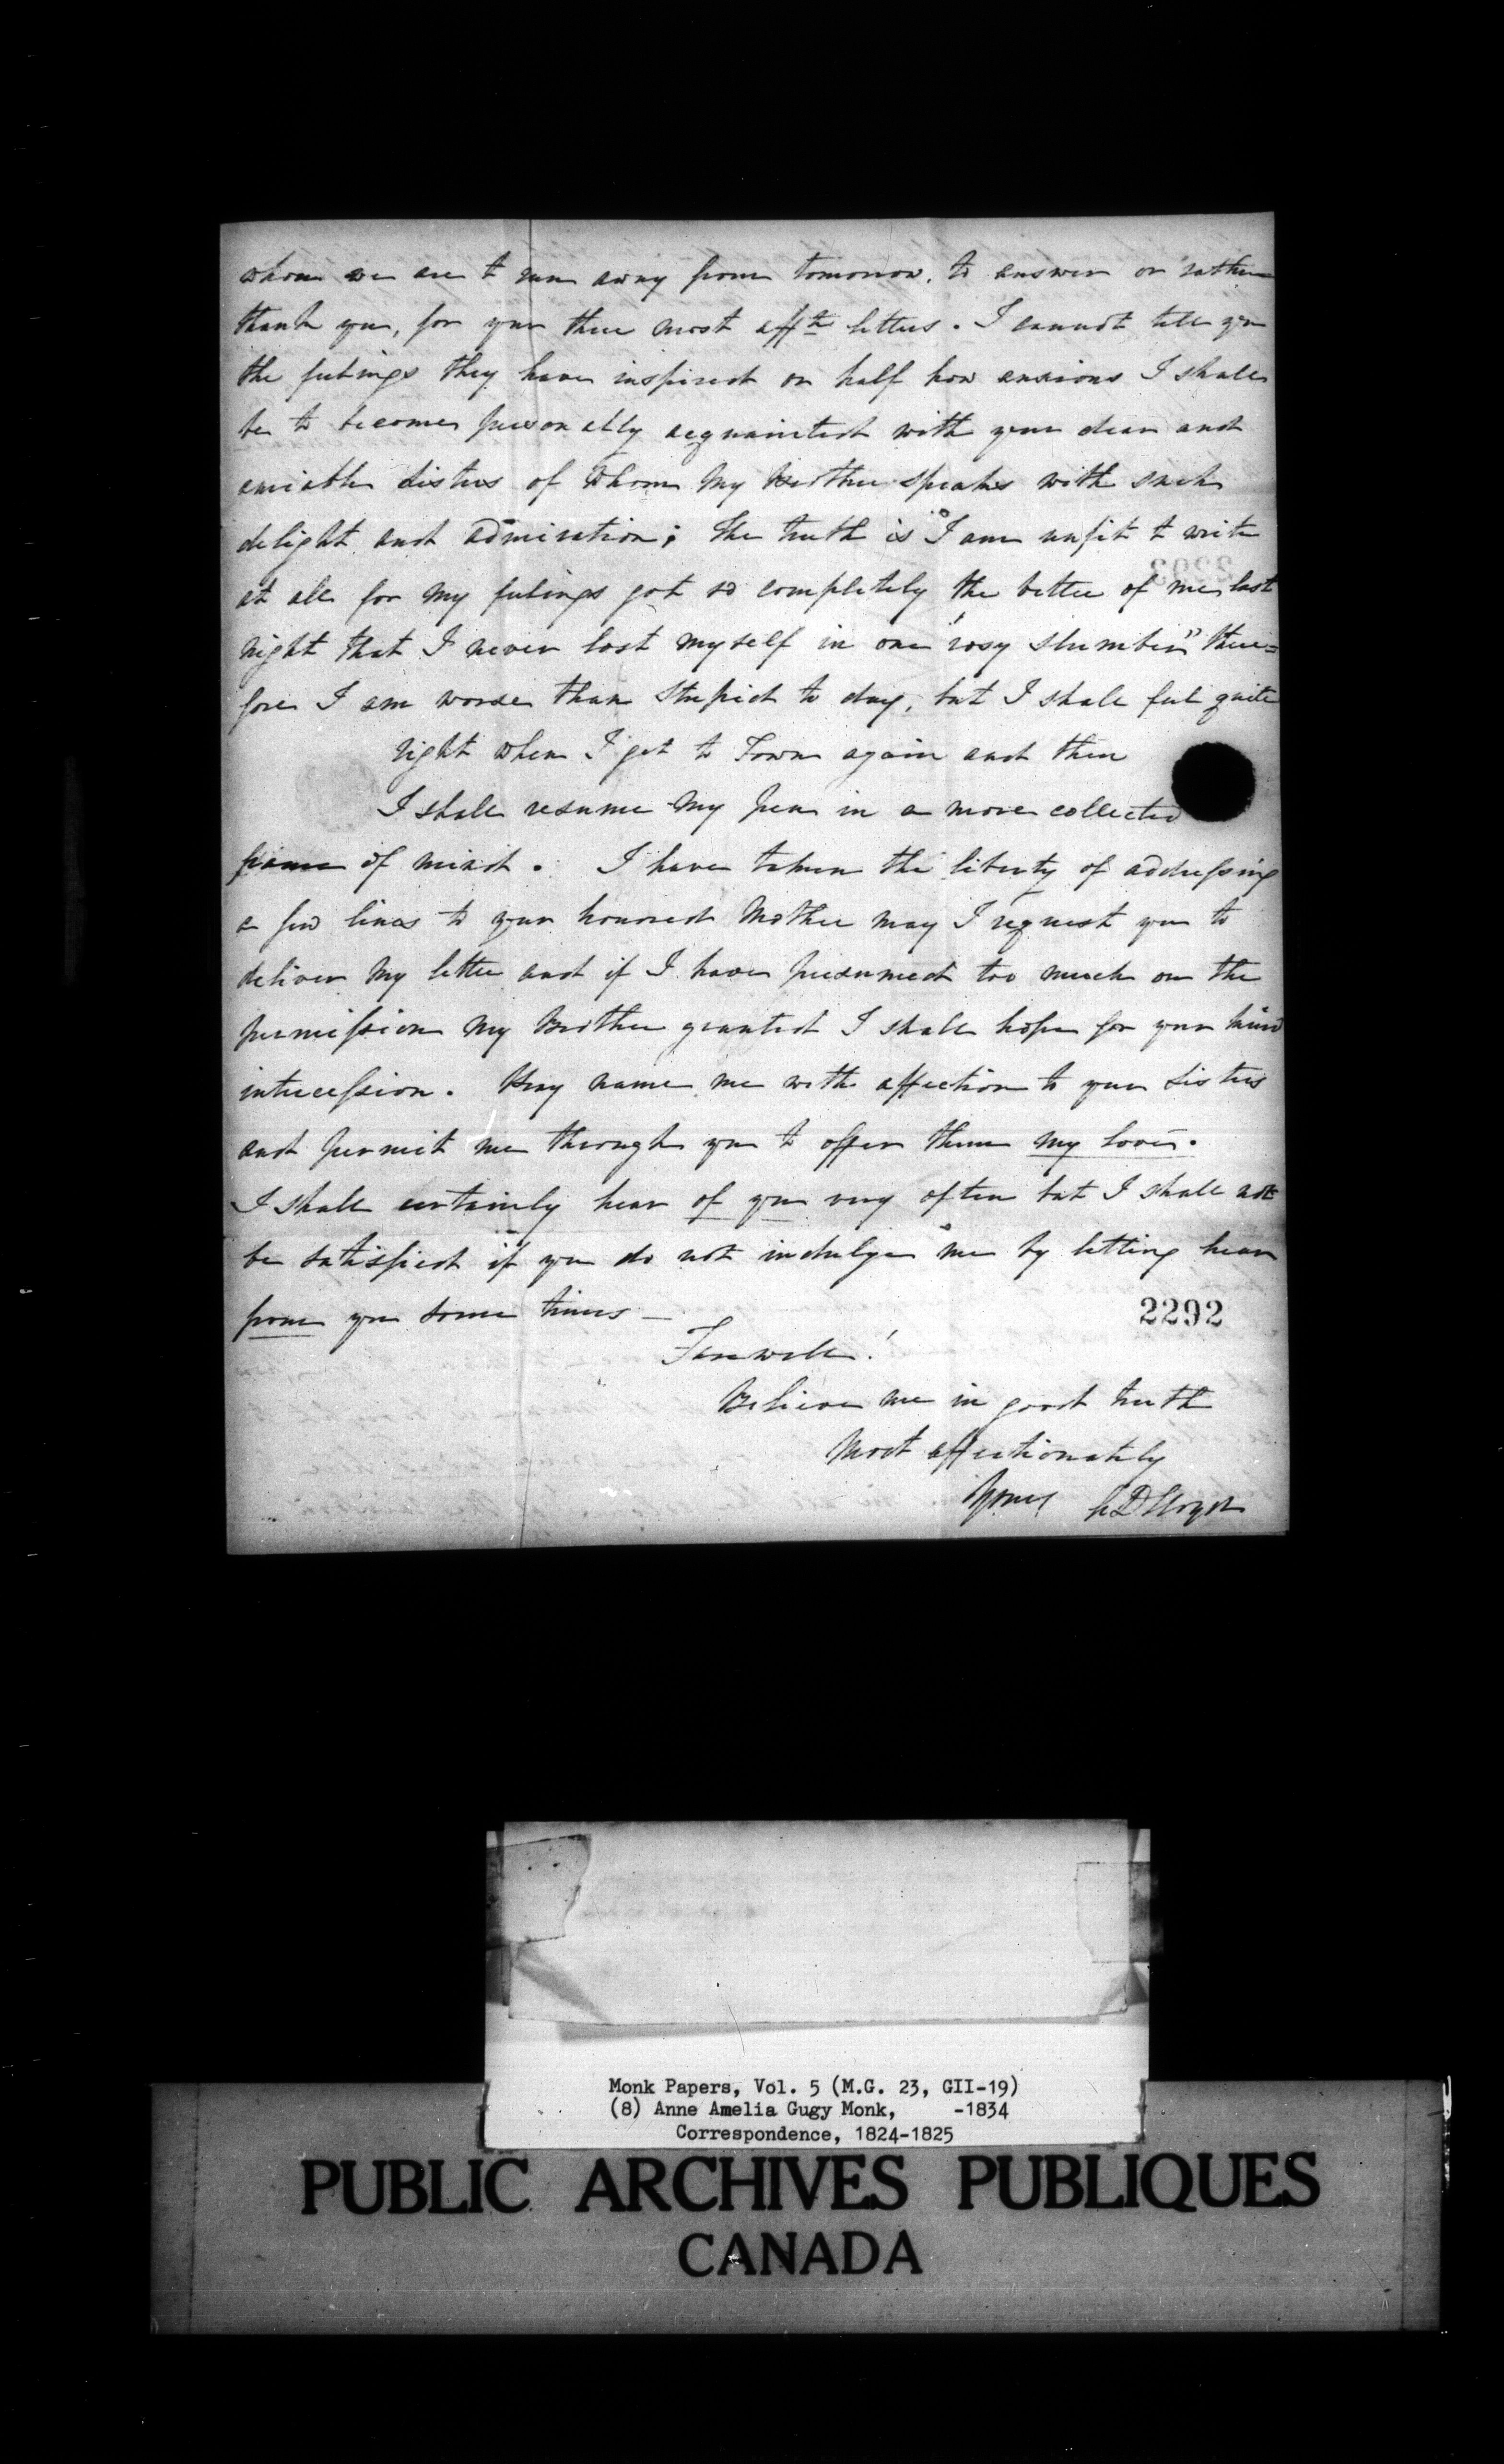 whom we are to run away from tomorrow, to answer or rather
thank you, for your three most afft letters. I cannot tell you
the feelings they have inspired or half how anxious I shall
be to become personally acquainted with your dear and
amiable Sisters of whom My Brother speaks with such
delight and admiration; the truth is I am unfit to write
at all for My feelings got so completely the better of me last
night that I never lost myself in one "rosy slumber" there=
fore I am worse than Stupid to day, but I shall feel quite
right when I get to Town again and then
I shall resume My pen in a more collected
frame of mind. I have taken the liberty of addressing
a few lines to your honored Mother may I request you to
deliver My letter and if I have presumed too much on the
permission My Brother granted I shall hope for your kind
intercession. Pray name me with affection to your Sisters
and permit me through you to offer them my love.
I shall certainly hear of you very often but I shall not
be satisfied if you do not indulge me by letting hear
from you some times —
2292
Farewell!
Believe me in good truth
Most affectionately
Yours D Lloyd
2293
Monk Papers, Vol. 5 (M.G. 23, GII-19)
(8) Anne Amelia Gugy Monk, -1834
Correspondence, 1824-1825
PUBLIC ARCHIVES PUBLIQUES
CANADA